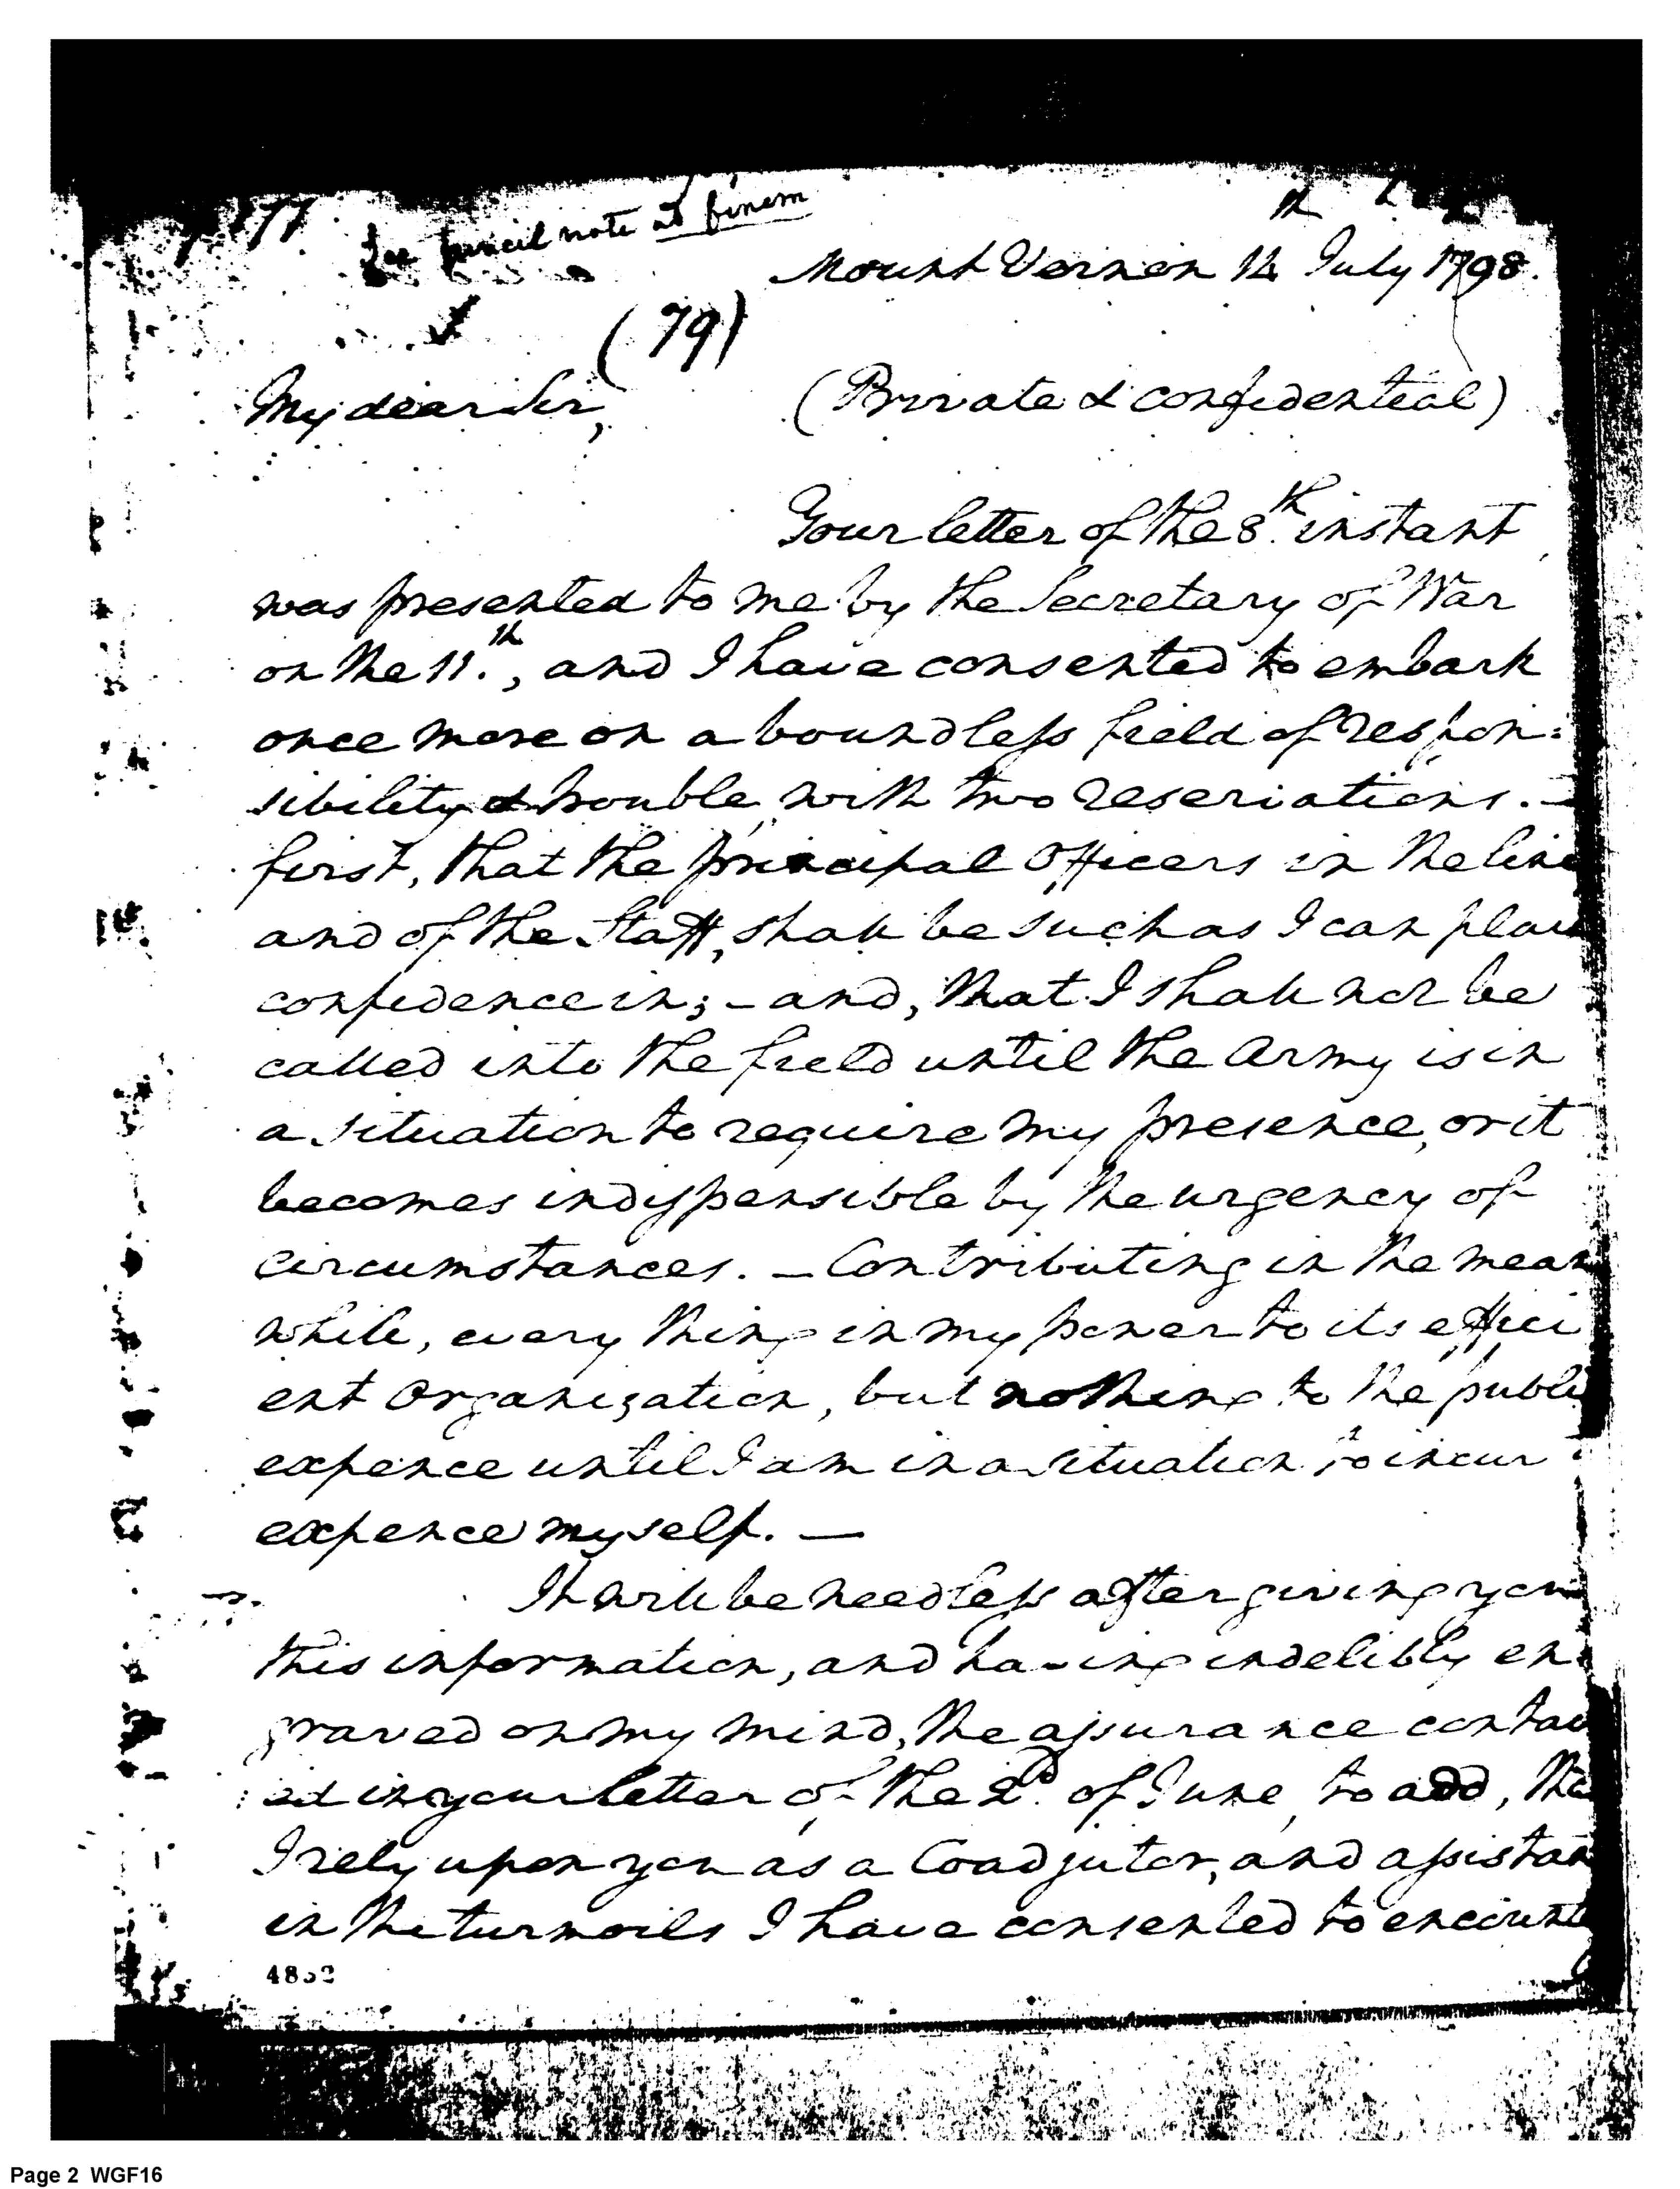 See pencil note ad finem
Mount Vernon 14th July 1798.
(79)
My dear Sir,
(Private & confidential)
Your letter of the 8th. instant
was presented to me by the Secretary of War
on the 11.th, and I have consented to embark
once more on a boundless field of respon:
sibility & trouble, with two reservations. —
first, that the principal Officers in the line
and of the Staff, shall be such as I can place
confidence in; – and, that I shall not be
called into the field until the Army is in
a situation to require my presence, or it
becomes indispensible by the urgency of
circumstances. – Contributing in the mean
while, every thing in my power to its effici
ent Organization, but nothing to the public
expence until I am in a situation to incur
expence myself. —
It will be needless after giving you
this information, and having indelibly en:
graved on my mind, the assurance contain
ed in your letter of the 2d. of June, to add, that
I rely upon you as a Coadjutor, and assistant
in the turmoils I have consented to encounter
Page 2 WGF16